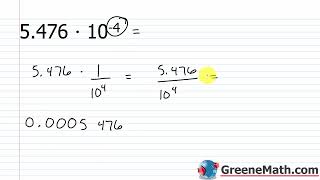 5.476 · 10⁻⁴ =
5.476 · 1/10⁴ = 5.476/10⁴ =
0.0005 476
GreeneMath.com